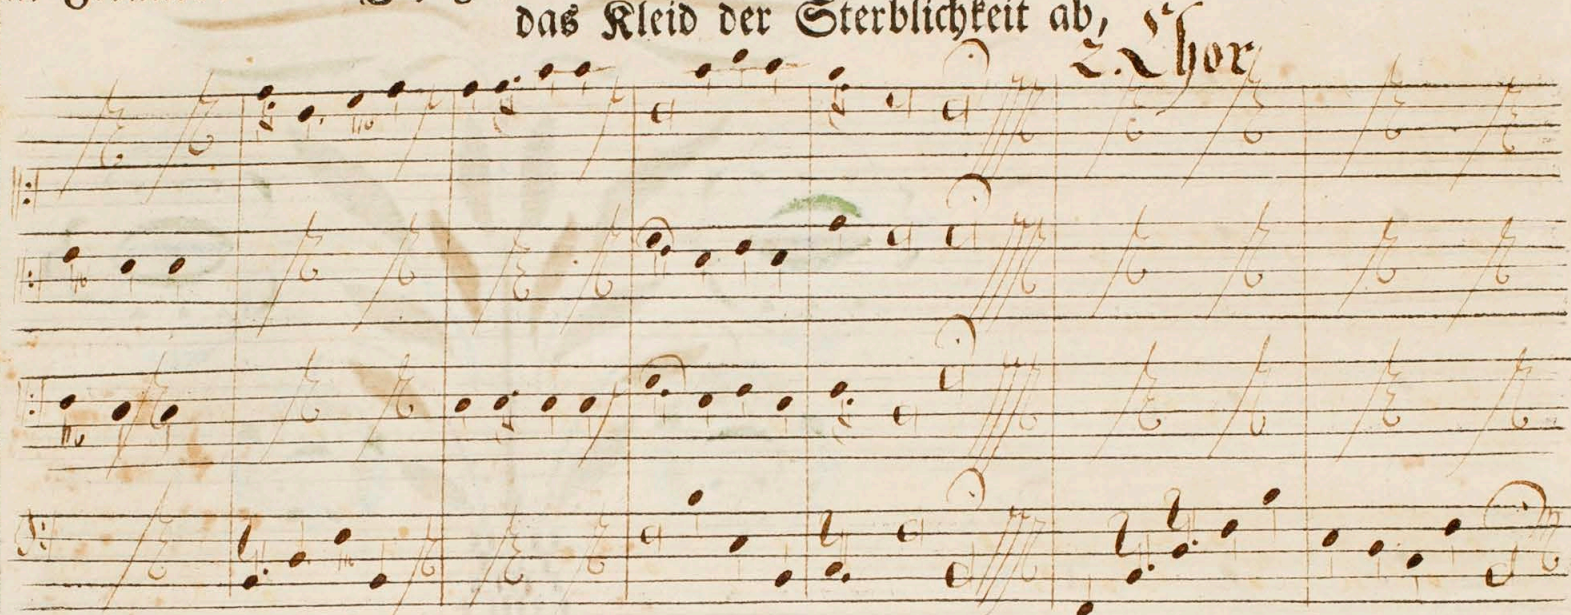 das Kleid der Sterblichkeit ab,
2. Chor